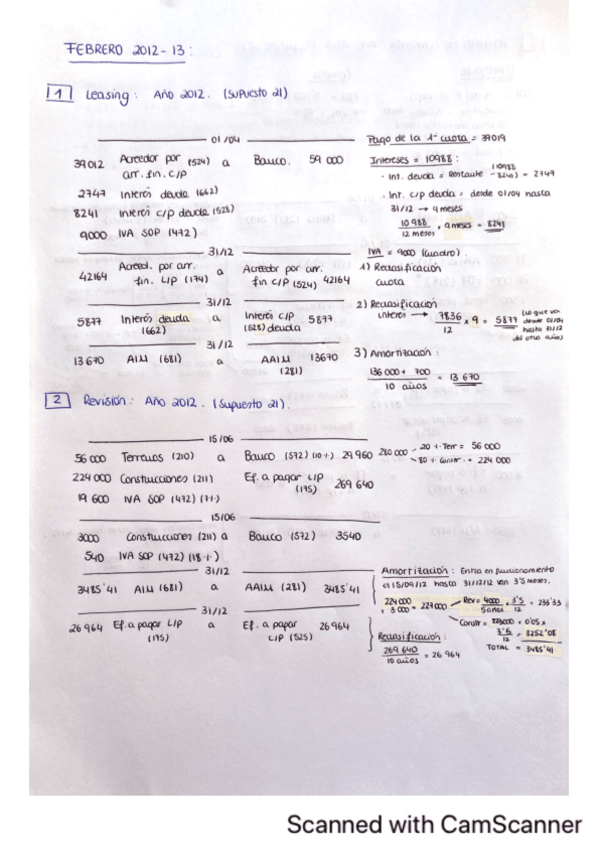 FEBRERO 2012-13:
1 Leasing: Año 2012. (Supuesto 21)
01/04
39012 Acreedor por (524) a Banco. 59 000
arr. fin. C/P
2747 Interés deuda (662)
8241 Interés c/p deuda (528)
9000 IVA SOP (472)
Pago de la 1ª cuota = 39019
Intereses = 10988:
· Int. deuda = Restante (10988 - 8241) = 2747
· Int. C/p deuda = desde 01/04 hasta
31/12 → 9 meses
10 988 / 12 meses × 9 meses = 8241
IVA = 9000 (cuadro).
31/12
42164 Acreed. por arr. a Acreedor por arr.
fin. L/P (174) fin C/P (524) 42164
1) Reclasificación
cuota
31/12
5877 Interés deuda a Interés C/P 5877
(662) (528) deuda
2) Reclasificación
interés → 7836 / 12 × 9 = 5877 (lo que va desde 01/04 hasta 31/12 del otro año)
31/12
13 670 AIM (681) a AAIM 13670
(281)
3) Amortización:
136 000 + 700 / 10 años = 13 670
2 Revisión: Año 2012. (Supuesto 21).
15/06
56 000 Terrenos (210) a Banco (572) (10%) 29 960
224 000 Construcciones (211) Ef. a pagar L/P
(175) 269 640
19 600 IVA SOP (472) (7%)
280 000 - 20% Terr = 56 000
80% Constr. = 224 000
15/06
3000 Construcciones (211) a Banco (572) 3540
540 IVA SOP (472) (18%)
31/12
3485'41 AIM (681) a AAIM (281) 3485'41
Amortización: Entra en funcionamiento
el 15/09/12 hasta 31/12/12 van 3'5 meses.
224 000 + 3 000 = 227 000
Rev = 4000 / 5 años × 3'5 / 12 = 233'33
Constr = 223000 × 0'05 ×
3'5 / 12 = 3252'08
TOTAL = 3485'41
31/12
26 964 Ef. a pagar L/P a Ef. a pagar 26 964
(175) C/P (525)
Reclasificación:
269 640 / 10 años = 26 964
Scanned with CamScanner